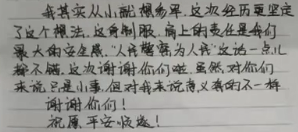 我其实从小就想当军，这次经历更坚定
了这个想法，这身制服，肩上的责任是我们
最大的安全感，“人民警察为人民”这话一点儿
都不错。这次谢谢你们啦。虽然，对你们
来说只是小事，但对我来说意义真的不一样
谢谢你们！
祝愿平安顺遂！